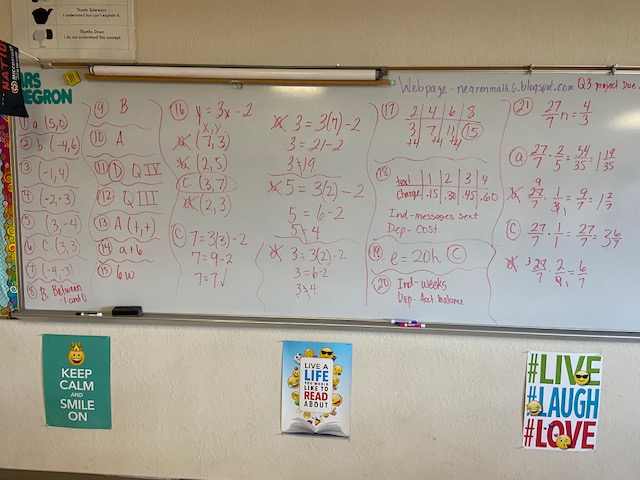 Thumb Sideways
I understand but can't explain it.
Thumbs Down
I do not understand this concept.
NATIO
RS
EGRON
Webpage - negronmath6.blogspot.com Q3 project Due
1 a (5,0)
2 b (-4,6)
3 (-1,4)
4 (-2,-3)
5 (3,-4)
6 C. (3,3)
7 (-4,-3)
8 B. Between
-1 and 0
9 B
10 A
11 D QIV
12 QIII
13 A (+,+)
14 a+b
15 6w
16 y = 3x - 2
x, y
a. (7,3)
b. (2,5)
C (3,7)
d. (2,3)
C 7 = 3(3) - 2
7 = 9 - 2
7 = 7 ✓
a. 3 = 3(7) - 2
3 = 21 - 2
3 ≠ 19
b. 5 = 3(2) - 2
5 = 6 - 2
5 ≠ 4
d. 3 = 3(2) - 2
3 = 6 - 2
3 ≠ 4
17 2 | 4 | 6 | 8
3 | 7 | 11 | 15
+4 +4 +4
18
text | 1 | 2 | 3 | 4
Charge | .15 | .30 | .45 | .60
Ind - messages sent
Dep - cost
19 e = 20h C
20 Ind - weeks
Dep. Acct. balance
21 27/7 n = 4/3
a 27/7 · 2/5 = 54/35 = 1 19/35
b. 27/7 · 1/3 = 9/7 = 1 2/7
C 27/7 · 1/1 = 27/7 = 3 6/7
d. 27/7 · 2/9 = 6/7
KEEP
CALM
AND
SMILE
ON
LIVE A
LIFE
YOU WOULD
LIKE TO
READ
ABOUT
#LIVE
#LAUGH
#LOVE